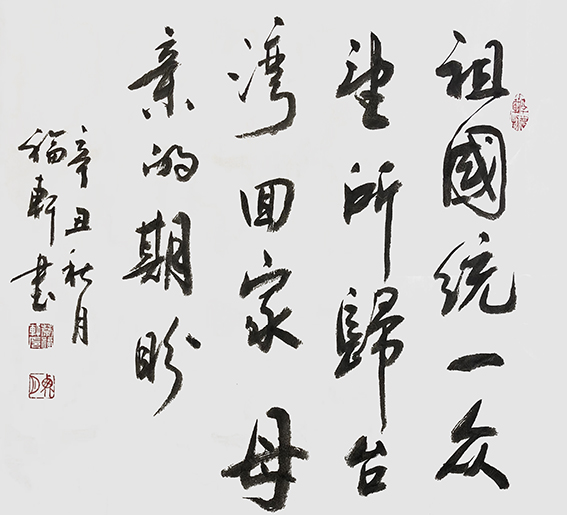 祖國统一众
望所歸台
湾回家母
亲的期盼
辛丑秋月
福軒书